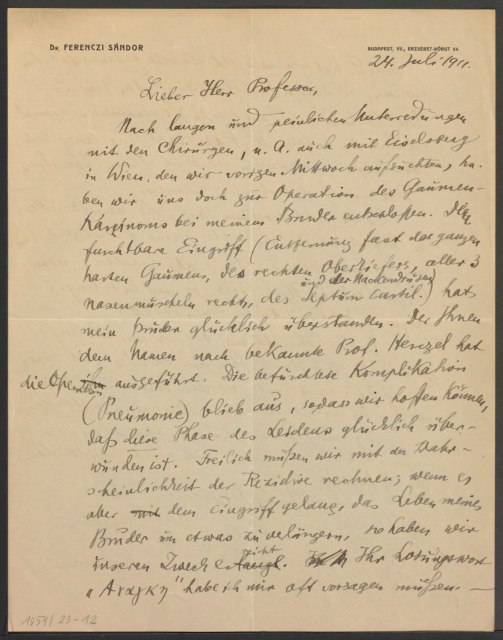 Dr. FERENCZI SÁNDOR
BUDAPEST, VII., ERZSÉBET-KÖRUT 54.
24. Juli 1911.
Lieber Herr Professor,
Nach langen und peinlichen Unterredungen
mit den Chirurgen, u. A. auch mit Eiselsberg
in Wien, den wir vorigen Mittwoch aufsuchten, ha-
ben wir uns doch zur Operation des Gaumen-
Karzinoms bei meinem Bruder entschlossen. Den
furchtbare Eingriff (Entfernung fast des ganzen
harten Gaumens, des rechten Oberkiefers, aller 3
Nasenmuscheln rechts, des Septum cartil.) hat
und der Nackendrüsen
mein Bruder glücklich überstanden. Der Ihnen
dem Namen nach bekannte Prof. Herczel hat
die Operation ausgeführt. Die befürchtete Komplikation
(Pneumonie) blieb aus, sodass wir hoffen können,
daß diese Phase des Leidens glücklich über-
wunden ist. Freilich müßen wir mit der Wahr-
scheinlichkeit der Rezidive rechnen; wenn es
aber dem Eingriff gelang, das Leben meines
Bruder um etwas zu verlängern, so haben wir
unseren Zweck erreicht. Ihr Losungswort
„Αναγκη" habe ich mir oft vorsagen müssen. —
1054/23-12